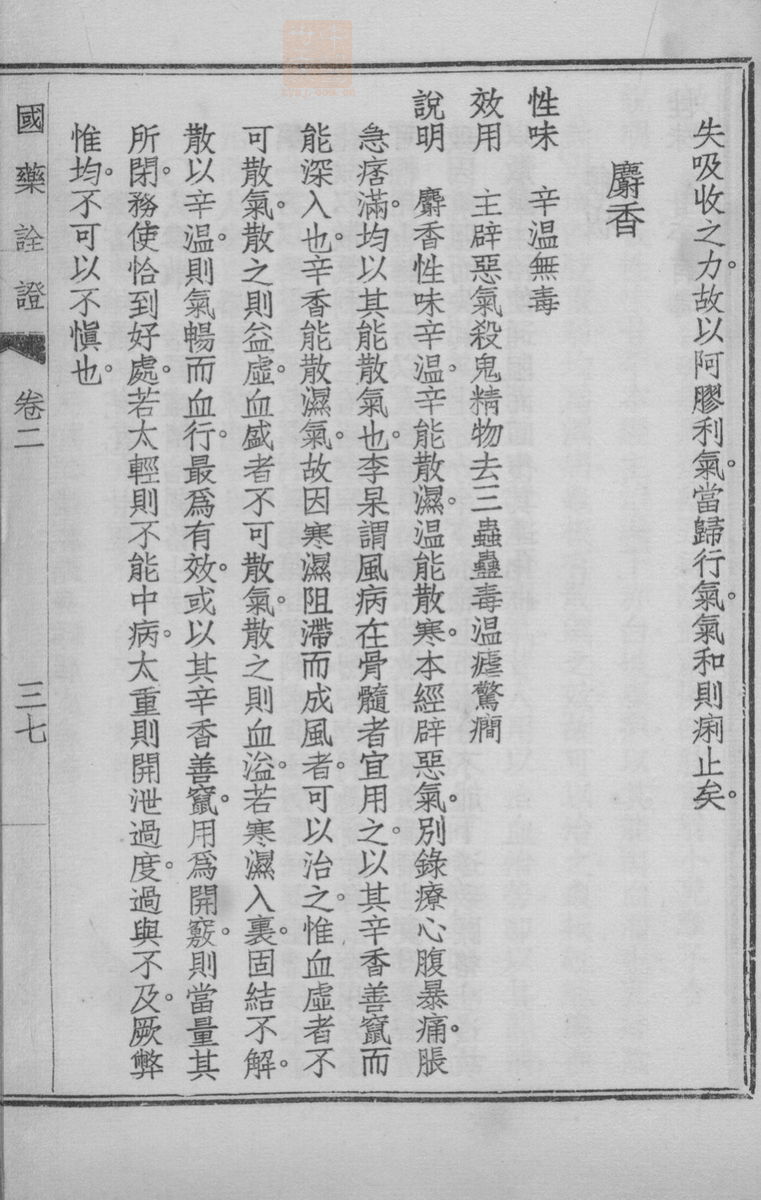 失吸收之力。故以阿膠利氣。當歸行氣。氣和則痢止矣。
麝香
性味　辛温無毒
效用　主辟惡氣殺鬼精物去三蟲蠱毒温瘧驚癎
說明　麝香性味辛温。辛能散濕。温能散寒。本經辟惡氣。別錄療心腹暴痛。脹
急痞滿。均以其能散氣也。李杲謂風病在骨髓者宜用之。以其辛香善竄而
能深入也。辛香能散濕氣。故因寒濕阻滯而成風者。可以治之。惟血虛者不
可散氣。散之則益虛。血盛者不可散氣。散之則血溢。若寒濕入裏。固結不解。
散以辛温。則氣暢而血行。最爲有效。或以其辛香善竄。用爲開竅。則當量其
所閉。務使恰到好處。若太輕則不能中病。太重則開泄過度。過與不及。厥弊
惟均。不可以不愼也。
國藥詮證　卷二　三七